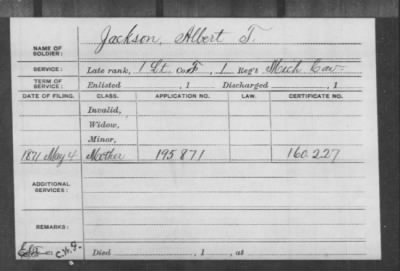 NAME OF SOLDIER: Jackson, Albert T.
SERVICE: Late rank, 1 Lt. Co. F, 1 Reg't Mich. Cav.
TERM OF SERVICE: Enlisted , 1 Discharged , 1
DATE OF FILING. CLASS. APPLICATION NO. LAW. CERTIFICATE NO.
Invalid,
Widow,
Minor,
1871 May 4 Mother 195.871 160.227
ADDITIONAL SERVICES:
REMARKS:
Died , 1 , at